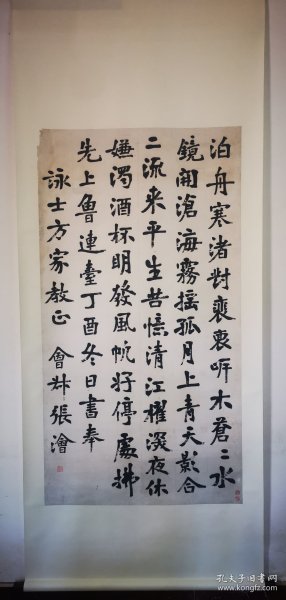 泊舟寒渚對裵木蒼〻水
鏡開滄海霧搖孤月上青天影合
二流來平生苦憶清江櫂深夜休
嫌濁酒杯明發風帆好停處拂
先上魯連臺丁酉冬日書奉
詠士方家教正 會張澮
孔夫子旧书网
www.kongfz.com